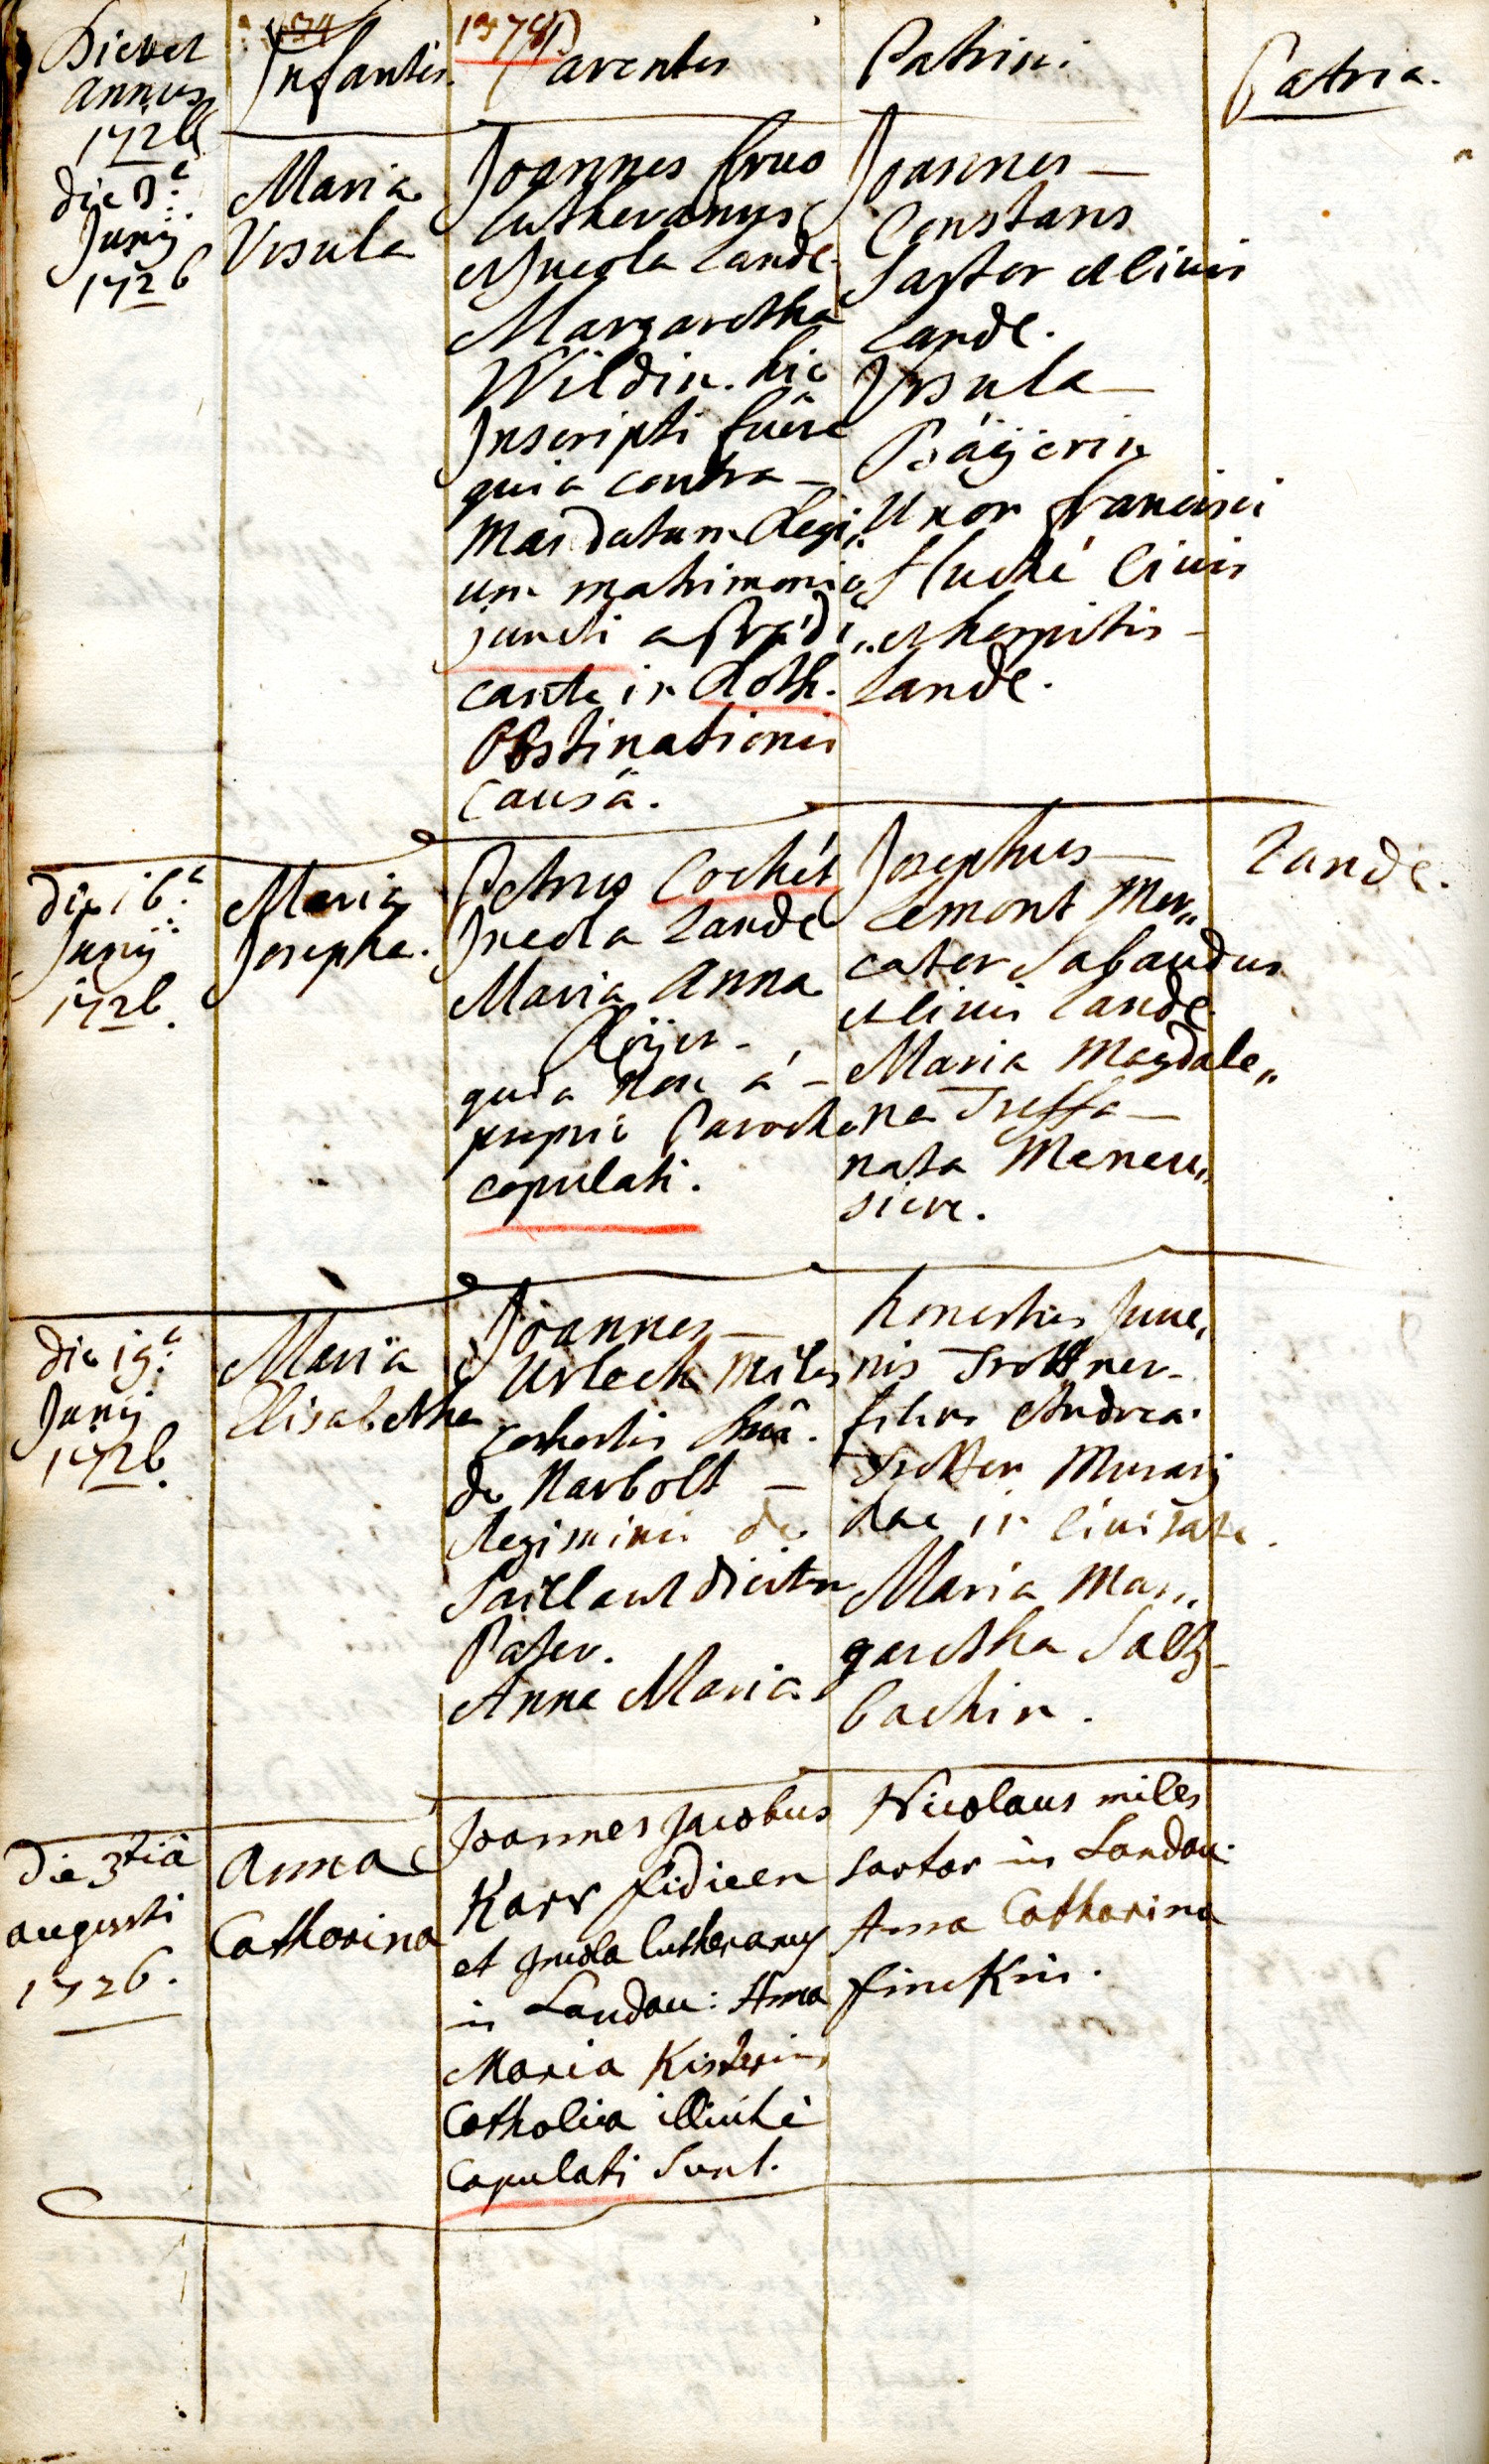 Dies et
annus
1726
Infantis.
1378
Parentes
Patrini
Patria.
die
Junij
1726
Maria
Ursula
Joannes
Lutheranus
et Incola Landæ
Margaretha
Wildin. hic
Inscripti fuêre
quia contra
Mandatum Regi„
um matrimonio
juncti a Prædi„
cante in
Obstinationis
causâ.
Joannes —
Constans
Sartor et Civis
Landæ.
Ursula —
Bäÿerin
Uxor Francisci
Civis
et hospitis —
Landæ.
die 16ª
Junij
1726.
Maria
Josepha.
Petrus Cochét
Incola Landæ
Maria Anna
quia non á —
proprio Parocho
copulati.
Josephus —
Lemont Mer„
cator Sabaudus
et Civis Landæ.
Maria Magdale„
na Treffa —
nata Meneu„
siere.
Landæ.
die 19ª
Junij
1726.
Maria
Elisabetha
Joannes —
Urleck Miles
de Narbolt —
Regiminis de
Saillant dicitur
Pater.
Anna Maria
honestus Juve„
nis Trottner
filius Andreæ
Murarij
hac in Civitate.
Maria Mar„
garetha Saltz
bachin.
die 3tiâ
augusti
1726.
Anna
Catharina
Joannes Jacobus
Karr fidicen
et Incola Lutheranus
in Landau: Anna
Maria Kisterin
Catholica illicité
Copulati Sunt.
Nicolaus miles
Sartor in Landau.
Anna Catharina
Finckin.